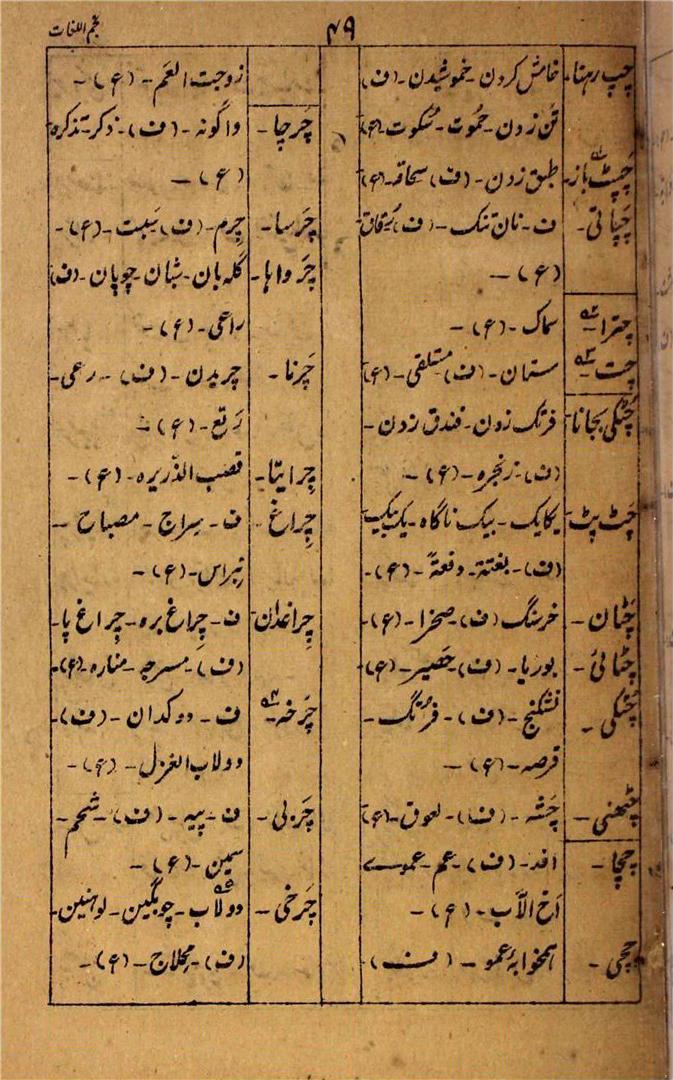 نجم اللغات
۴۹
چپ رہنا۔ خامش کردن۔ خموشیدن۔ (ف)
تن زدن۔ حُموت۔ سُکوت (ع)
چپٹ باز۔ طبق زدن۔ (ف) سحاقہ۔ (ع)
چَپاتی۔ ف۔ نان تنک۔ (ف) رُقاق۔
(ع)۔
چترا۔ سماک۔ (ع)۔
چِت۔ ستان۔ (ف) مستلقی۔ (ع)
چُٹکی بجانا۔ فرنگ زدن۔ فندق زدن۔
(ف)۔ زنجرہ۔ (ع)۔
چَٹ پَٹ۔ یکایک۔ بیک ناگاہ۔ یک بیک
(ف)۔ بغتۃ۔ دفعۃً۔ (ع)۔
چَٹان۔ خرسنگ (ف)۔ صخرا۔ (ع)۔
چٹائی۔ بوریا۔ (ف) حَصیر۔ (ع)
چُٹکی۔ نشکنج۔ (ف)۔ فرُنگ۔
قرصہ۔ (ع)۔
چٹھنی۔ چَشہ۔ (ف)۔ لعوق۔ (ع)
چچا۔ افد۔ (ف)۔ عم۔ عموے
اَخ الاَب۔ (ع)۔
چچی۔ ہمخوابۂ عمو۔ (ف)۔
زوجت العَم۔ (ع)۔
چَرچا۔ واگونہ۔ (ف)۔ ذکر۔ تذکرہ
(ع)۔
چَرسا۔ چرم۔ (ف)۔ سِبت۔ (ع)۔
چَرواہا۔ گلہ بان۔ شبان۔ چوپان۔ (ف)
راعی۔ (ع)۔
چَرنا۔ چریدن۔ (ف)۔ رعی۔
رَتع۔ (ع)۔
چِرایتا۔ قصب الذّریرہ۔ (ع)۔
چِراغ۔ ف۔ سِراج۔ مصباح۔
نِبراس۔ (ع)۔
چِراغدان۔ ف۔ چِراغ برہ۔ چراغ پا۔
(ف)۔ مسرجہ۔ منارہ (ع)۔
چَرخہ۔ ف۔ دوکدان۔ (ف)۔
دولاب الغزل۔ (ع)۔
چَربی۔ ف۔ پیہ۔ (ف)۔ شحم۔
سمین۔ (ع)۔
چَرخی۔ دولاب۔ چوبگین۔ لوہنین۔
(ف)۔ مِحلاج۔ (ع)۔